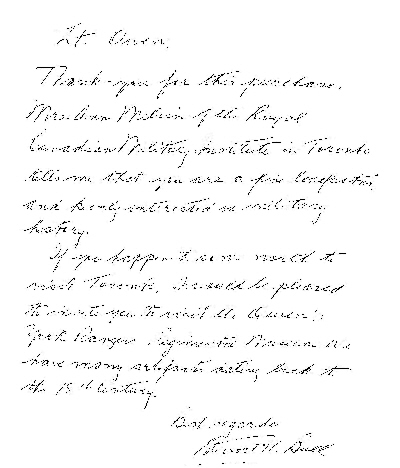 Lt. Owen,
Thank you for this purchase.
Mrs. Ann Melvin of the Royal
Canadian Military Institute in Toronto
tells me that you are a fine benefactor,
and keenly interested in military
history.
If you happen to come north to
visit Toronto, I would be pleased
to invite you to visit the Queen's
York Rangers Regimental Museum. We
have many artifacts dating back to
the 18th Century.
Best regards